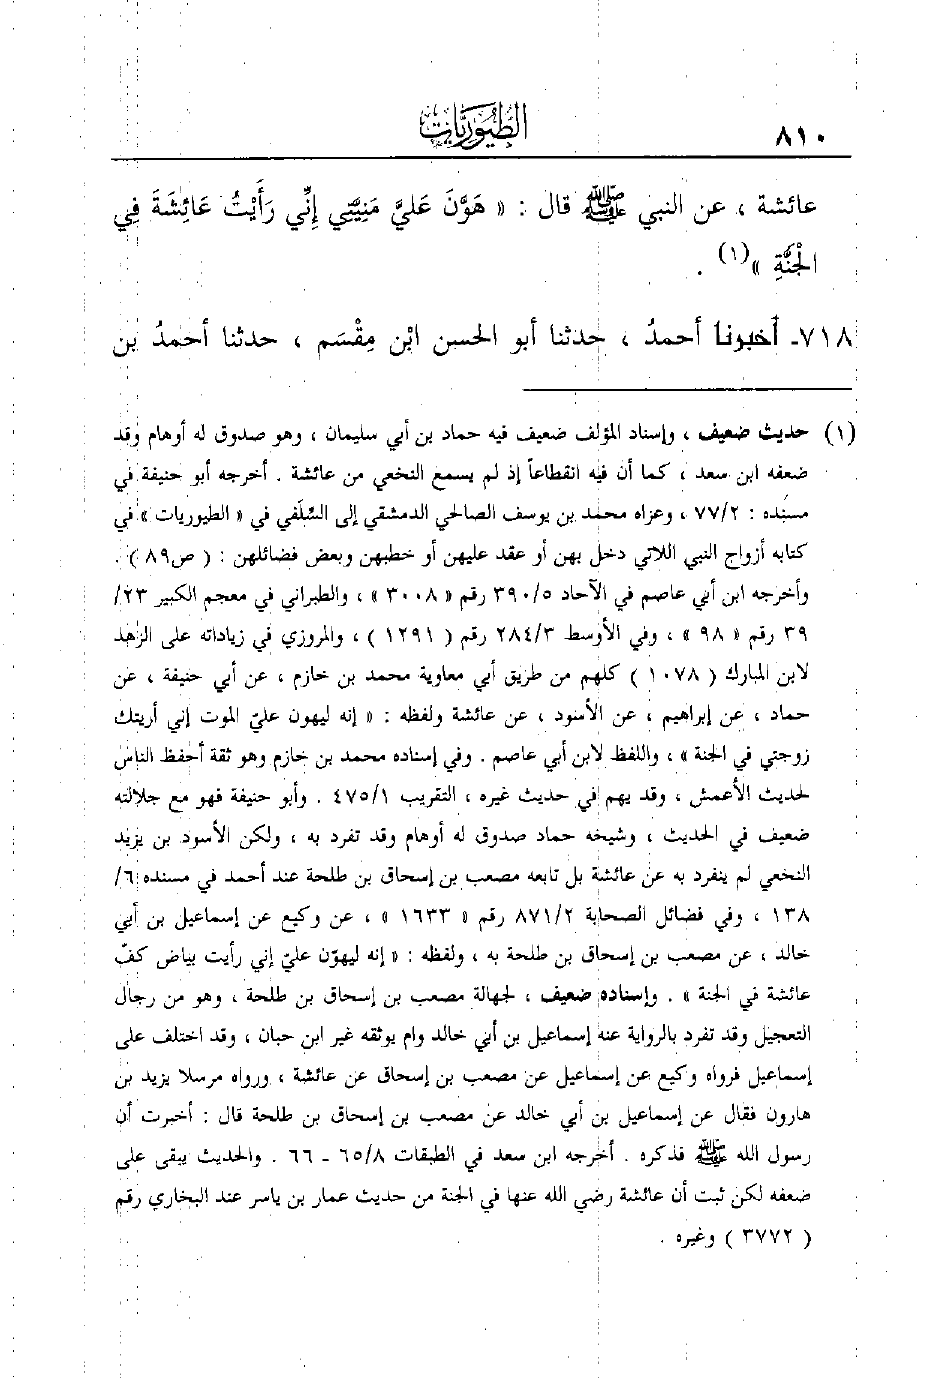 ٨١٠
الطيوريات
عائشة ، عن النبي ﷺ قال : « هَوَّنَ عَليَّ مَنِيَّتِي إِنِّي رَأَيْتُ عَائِشَةَ فِي
الْجَنَّةِ »(١) .
٧١٨ـ أخبرنا أحمدُ ، حدثنا أبو الحسن ابْن مِقْسَم ، حدثنا أحمدُ بن
(١) حديث ضعيف ، وإسناد المؤلف ضعيف فيه حماد بن أبي سليمان ، وهو صدوق له أوهام وقد
ضعفه ابن سعد ، كما أن فيه انقطاعاً إذ لم يسمع النخعي من عائشة . أخرجه أبو حنيفة في
مسنده : ٧٧/٢ ، وعزاه محمد بن يوسف الصالحي الدمشقي إلى السِّلَفي في « الطيوريات » في
كتابه أزواج النبي اللاتي دخل بهن أو عقد عليهن أو خطبهن وبعض فضائلهن : ( ص٨٩ ) .
وأخرجه ابن أبي عاصم في الآحاد ٣٩٠/٥ رقم « ٣٠٠٨ » ، والطبراني في معجم الكبير ٢٣/
٣٩ رقم « ٩٨ » ، وفي الأوسط ٢٨٤/٣ رقم ( ١٢٩١ ) ، والمروزي في زياداته على الزهد
لابن المبارك ( ١٠٧٨ ) كلهم من طريق أبي معاوية محمد بن خازم ، عن أبي حنيفة ، عن
حماد ، عن إبراهيم ، عن الأسود ، عن عائشة ولفظه : « إنه ليهون عليّ الموت إني أريتك
زوجتي في الجنة » ، واللفظ لابن أبي عاصم . وفي إسناده محمد بن خازم وهو ثقة أحفظ الناس
لحديث الأعمش ، وقد يهم في حديث غيره ، التقريب ٤٧٥/١ . وأبو حنيفة فهو مع جلالته
ضعيف في الحديث ، وشيخه حماد صدوق له أوهام وقد تفرد به ، ولكن الأسود بن يزيد
النخعي لم ينفرد به عن عائشة بل تابعه مصعب بن إسحاق بن طلحة عند أحمد في مسنده ٦/
١٣٨ ، وفي فضائل الصحابة ٨٧١/٢ رقم « ١٦٣٣ » ، عن وكيع عن إسماعيل بن أبي
خالد ، عن مصعب بن إسحاق بن طلحة به ، ولفظه : « إنه ليهوّن عليّ إني رأيت بياض كفّ
عائشة في الجنة » . وإسناده ضعيف ، لجهالة مصعب بن إسحاق بن طلحة ، وهو من رجال
التعجيل وقد تفرد بالرواية عنه إسماعيل بن أبي خالد وام يوثقه غير ابن حبان ، وقد اختلف على
إسماعيل فرواه وكيع عن إسماعيل عن مصعب بن إسحاق عن عائشة ، ورواه مرسلا يزيد بن
هارون فقال عن إسماعيل بن أبي خالد عن مصعب بن إسحاق بن طلحة قال : أخبرت أن
رسول الله ﷺ فذكره . أخرجه ابن سعد في الطبقات ٦٥/٨ ـ ٦٦ . والحديث يبقى على
ضعفه لكن ثبت أن عائشة رضي الله عنها في الجنة من حديث عمار بن ياسر عند البخاري رقم
( ٣٧٧٢ ) وغيره .